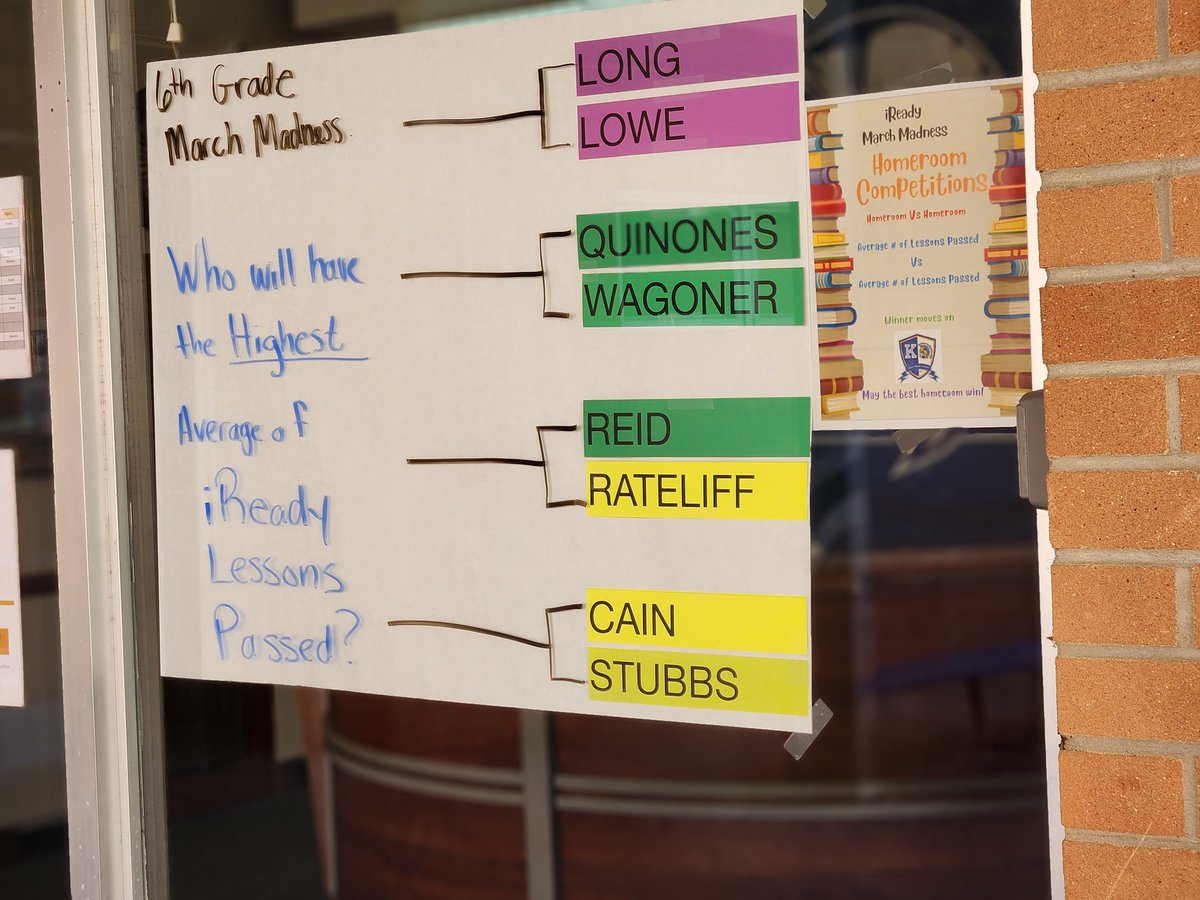 6th Grade
March Madness
Who will have
the Highest
Average of
iReady
Lessons
Passed?
LONG
LOWE
QUINONES
WAGONER
REID
RATELIFF
CAIN
STUBBS
iReady
March Madness
Homeroom
Competitions
Homeroom Vs Homeroom
Average # of Lessons Passed
Vs
Average # of Lessons Passed
Winner moves on
K
May the best homeroom win!